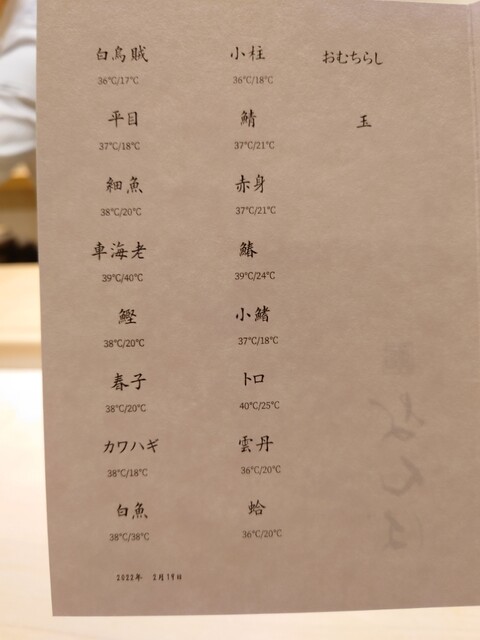 白烏賊
36℃/17℃
平目
37℃/18℃
細魚
38℃/20℃
車海老
39℃/40℃
鰹
38℃/20℃
春子
38℃/20℃
カワハギ
38℃/18℃
白魚
38℃/38℃
小柱
36℃/18℃
鯖
37℃/21℃
赤身
37℃/21℃
鰆
39℃/24℃
小鰭
37℃/18℃
トロ
40℃/25℃
雲丹
36℃/20℃
蛤
36℃/20℃
おむちらし
玉
2022年 2月19日